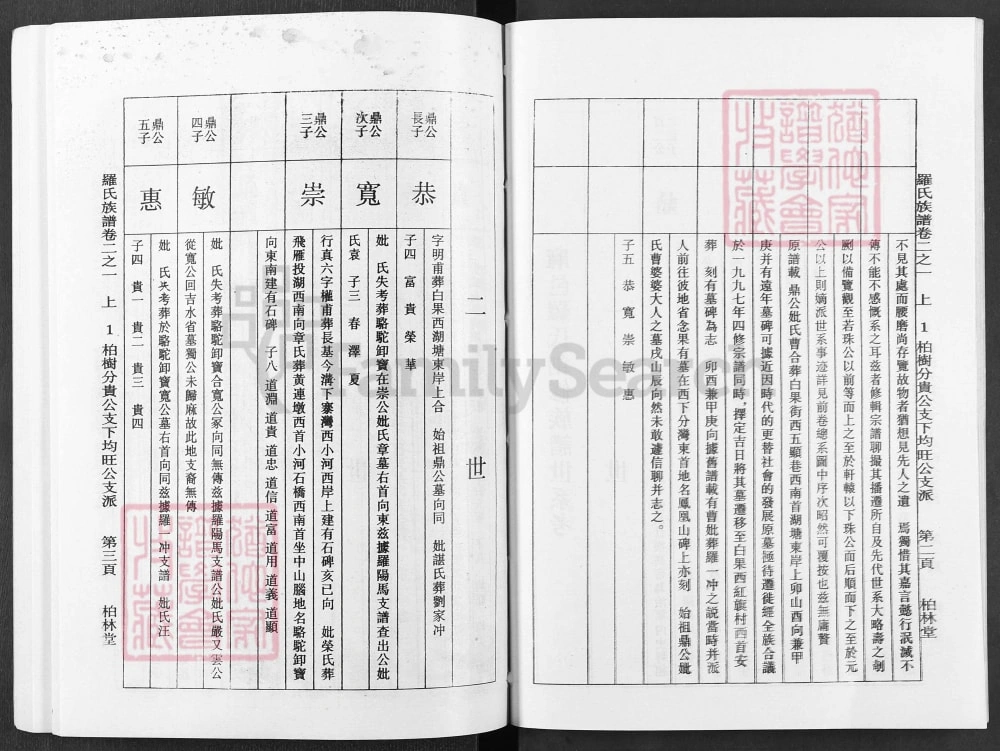 羅氏族譜卷二之一 上 1 柏樹分貴公支下均旺公支派 第二頁 柏林堂
不見其處而腰磨尚存覽故物者猶想見先人之遺 焉獨惜其嘉言懿行泯滅不
傳不能不感慨系之耳茲者修輯宗譜聊撮其播遷所自及先代世系大略壽之剞
劂以備覽觀至若珠公以前等而上之至於軒轅以下珠公而后順而下之至於元
公以上則嫡派世系事迹詳見前卷總系圖中序次昭然可覆按也茲無庸贅
原譜載 鼎公妣氏曹合葬白果街西五顯巷西南首湖塘東岸上卯山酉向兼甲
庚并有遠年墓碑可據近因時代的更替社會的發展原墓亟待遷徙經全族合議
於一九九七年四修宗譜同時，擇定吉日將其墓遷移至白果西紅旗村西首安
葬 刻有墓碑為志 卯酉兼甲庚向據舊譜載有曹妣葬羅一冲之説嘗時并派
人前往彼地省念果有墓在西下分灣東首地名鳳凰山碑上亦刻 始祖鼎公妣
氏曹婆婆大人之墓戌山辰向然未敢遽信聊并志之。
子五 恭 寬 崇 敏 惠
二 世
鼎公長子 恭
字明甫葬白果西湖塘東岸上合 始祖鼎公墓向同 妣諶氏葬劉家冲
子四 富 貴 榮 華
鼎公次子 寬
妣 氏失考葬駱駝卸寶在崇公妣氏章墓右首向東茲據羅陽馬支譜查出公妣
氏袁 子三 春 澤 夏
鼎公三子 崇
行真六字權甫葬長基今溝下寨灣西小河西岸上建有石碑亥已向 妣榮氏葬
飛雁投湖西南向章氏葬黃連墩西首小河石橋西南首坐中山腦地名駱駝卸寶
向東南建有石碑 子八 道淵 道貴 道忠 道信 道富 道用 道義 道顯
鼎公四子 敏
妣 氏失考葬駱駝卸寶合寬公冢向同無傳茲據羅陽馬支譜公妣氏嚴又雲公
從寬公回吉水省墓獨公未歸麻故此地支裔無傳
鼎公五子 惠
妣 氏失考葬於駱駝卸寶寬公墓右首向同茲據羅一冲支譜 妣氏汪
子四 貴一 貴二 貴三 貴四
羅氏族譜卷二之一 上 1 柏樹分貴公支下均旺公支派 第三頁 柏林堂
FamilySearch